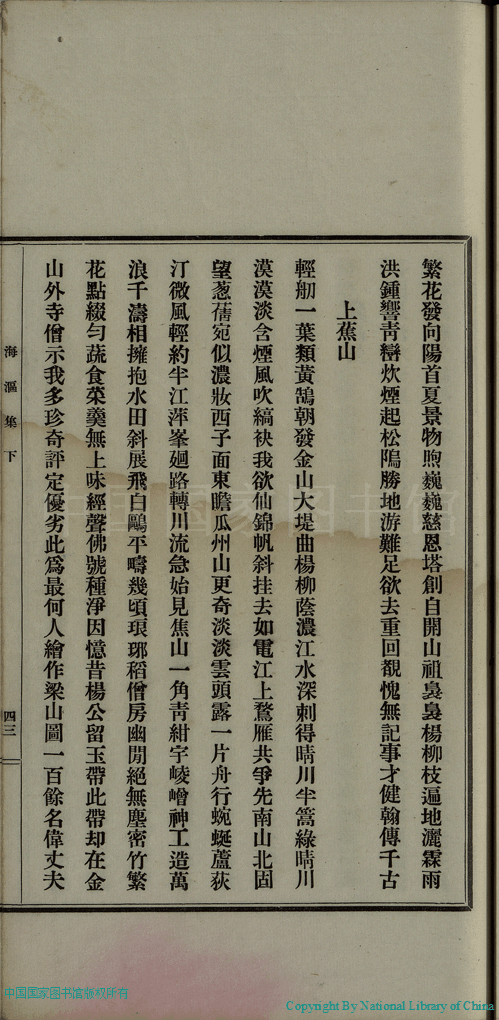 繁花發向陽首夏景物煦巍巍慈恩塔創自開山祖裊裊楊柳枝遍地灑霖雨
洪鍾響靑巒炊煙起松隖勝地游難足欲去重回覩愧無記事才健翰傳千古
上蕉山
輕舠一葉類黃鵠朝發金山大堤曲楊柳蔭濃江水深刺得晴川半篙綠晴川
漠漠淡含煙風吹縞袂我欲仙錦帆斜挂去如電江上鵞雁共爭先南山北固
望葱蒨宛似濃妝西子面東瞻瓜州山更奇淡淡雲頭露一片舟行蜿蜒蘆荻
汀微風輕約半江萍峯廻路轉川流急始見焦山一角靑紺宇崚嶒神工造萬
浪千濤相擁抱水田斜展飛白鷗平疇幾頃琅琊稻僧房幽閒絕無塵密竹繁
花點綴勻蔬食菜羹無上味經聲佛號種淨因憶昔楊公留玉帶此帶却在金
山外寺僧示我多珍奇評定優劣此爲最何人繪作梁山圖一百餘名偉丈夫
海漚集下
四三
中国国家图书馆
中国国家图书馆版权所有
Copyright By National Library of China